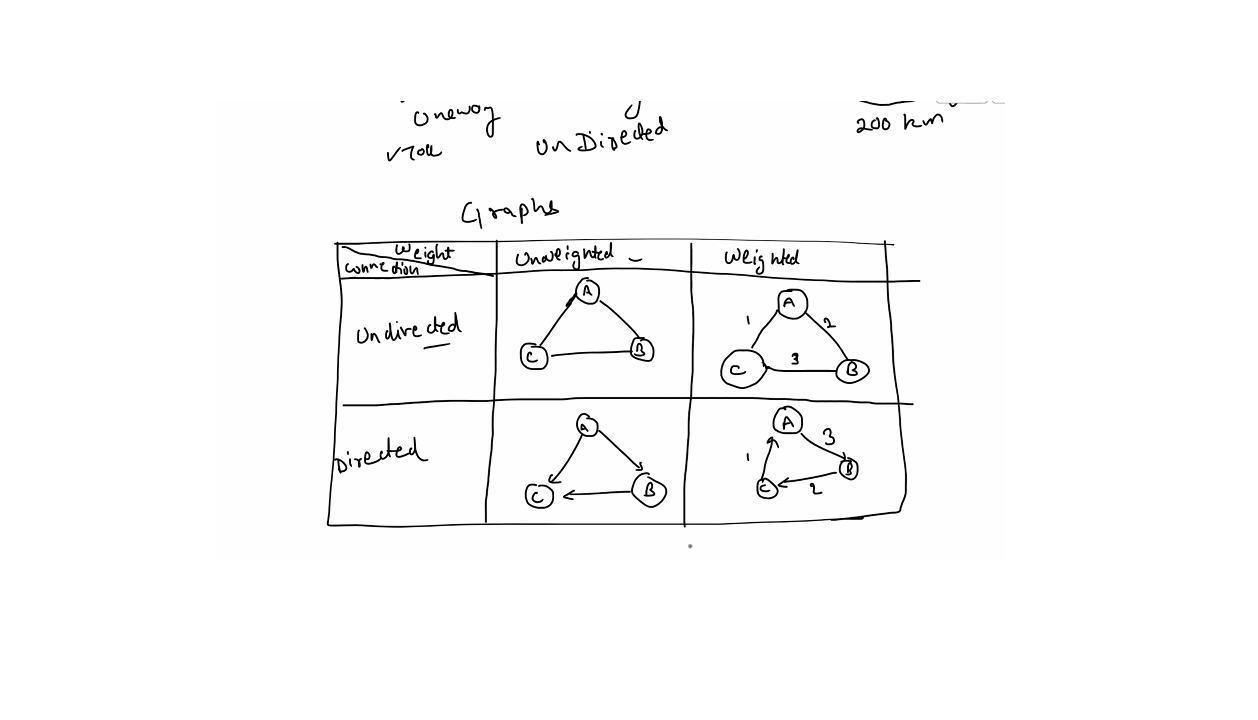 Oneway
UnDirected
200 km
Graphs
Weight
Connection
Unweighted
Weighted
Undirected
A
C
B
A
1
2
C
3
B
Directed
A
C
B
A
3
1
B
C
2